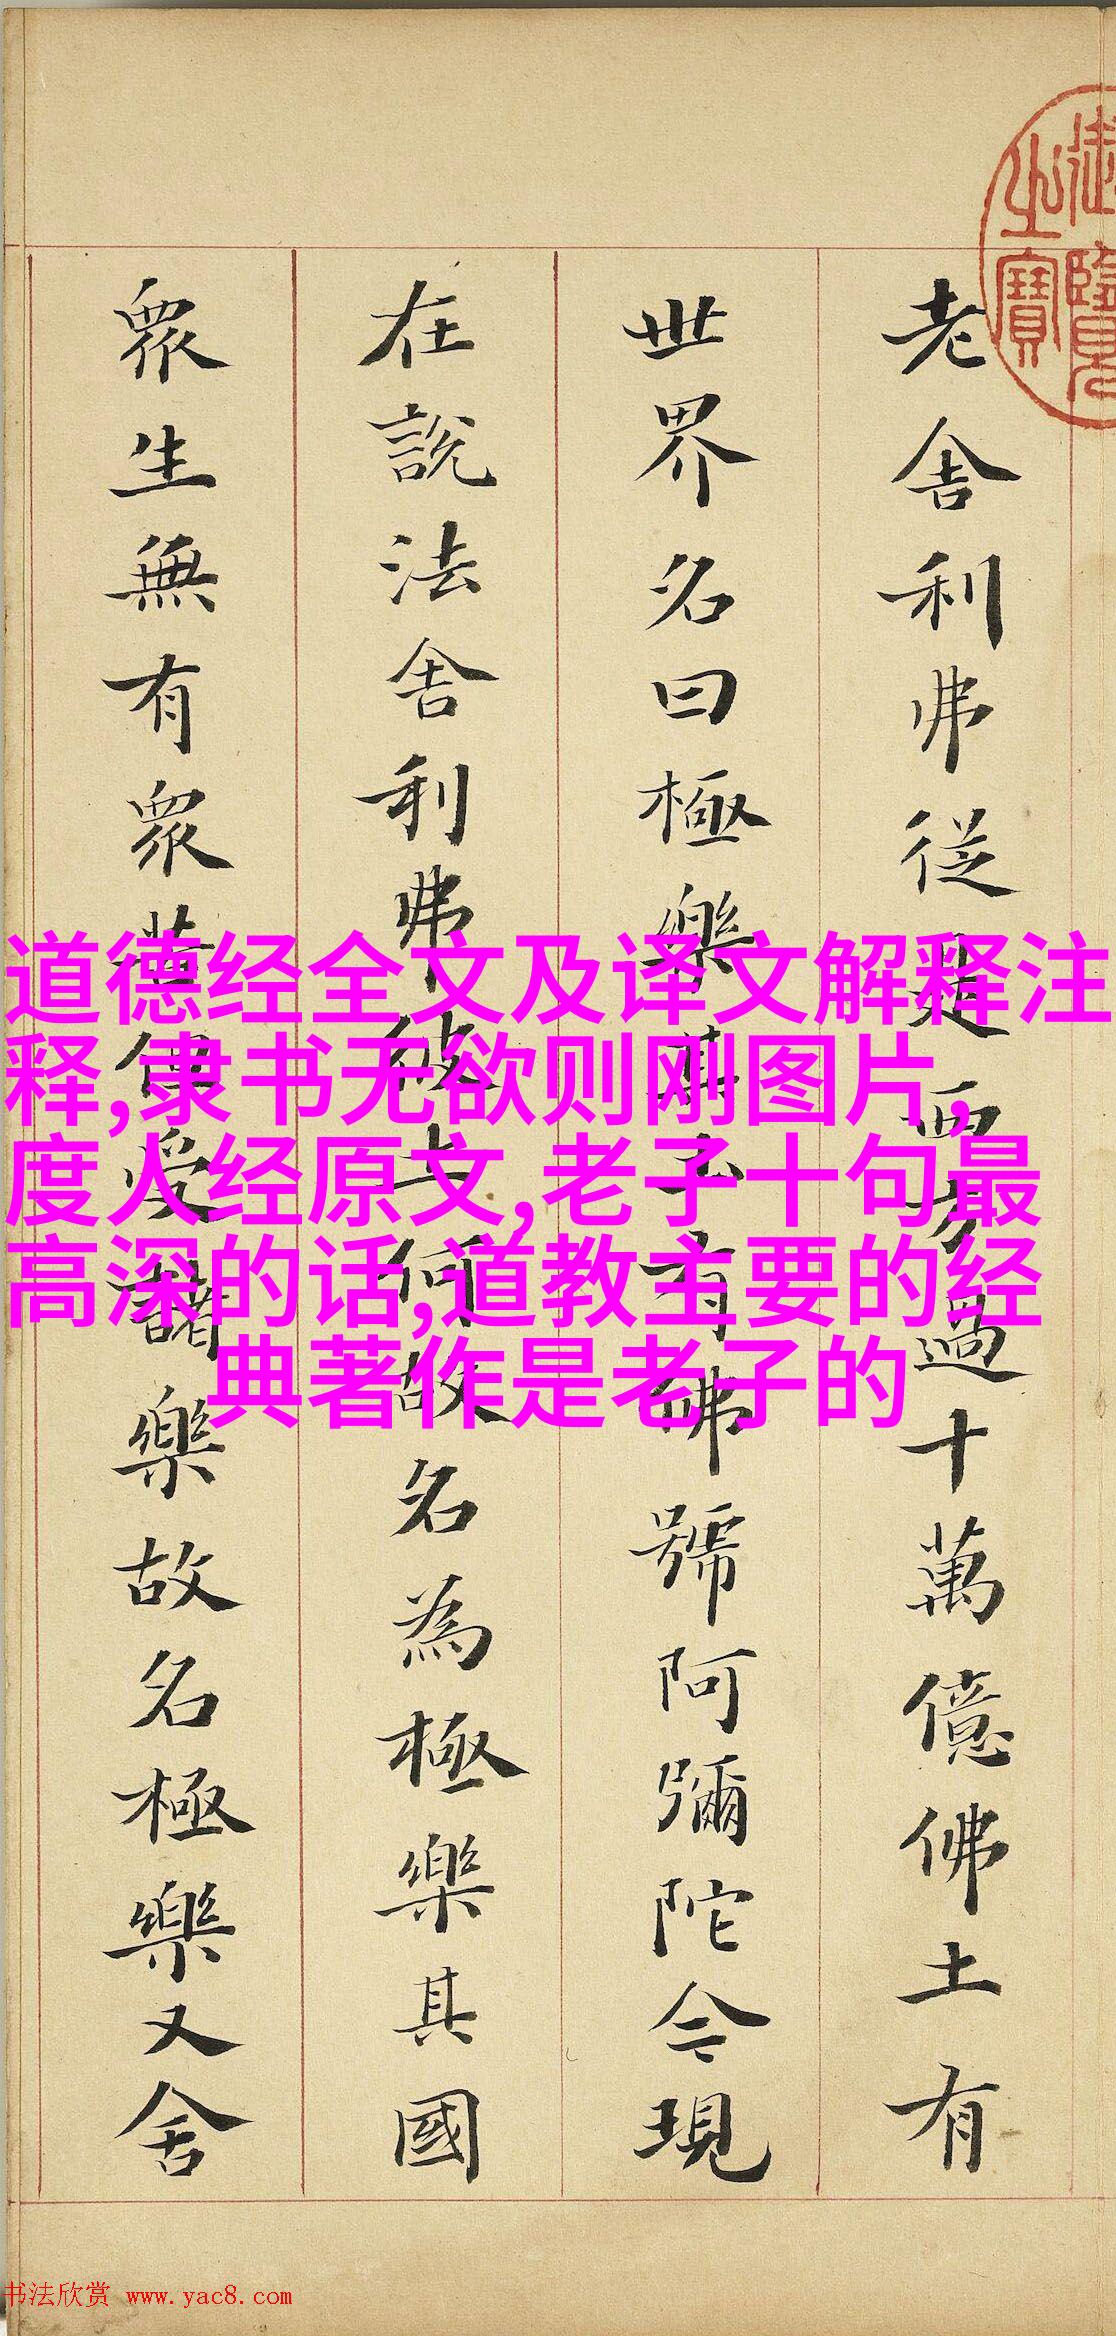 御覽之寶
老舍利弗從是西方過十萬億佛土有
世界名曰極樂其土有佛號阿彌陀今現
在說法舍利弗彼土何故名為極樂其國
眾生無有眾苦但受諸樂故名極樂又舍
道德经全文及译文解释注
释,隶书无欲则刚图片,
度人经原文,老子十句最
高深的话,道教主要的经
典著作是老子的
书法欣赏 www.yac8.com